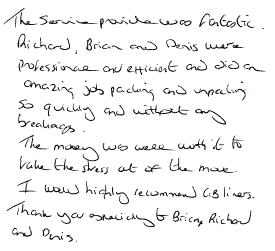 The Service provided was fantastic.
Richard, Brian and Denis were
professional and efficient and did an
amazing job packing and unpacking
so quickly and without any
breakages.
The money was well worth it to
take the stress out of the move.
I would highly recommend GB liners.
Thank you especially to Brian, Richard
and Denis.